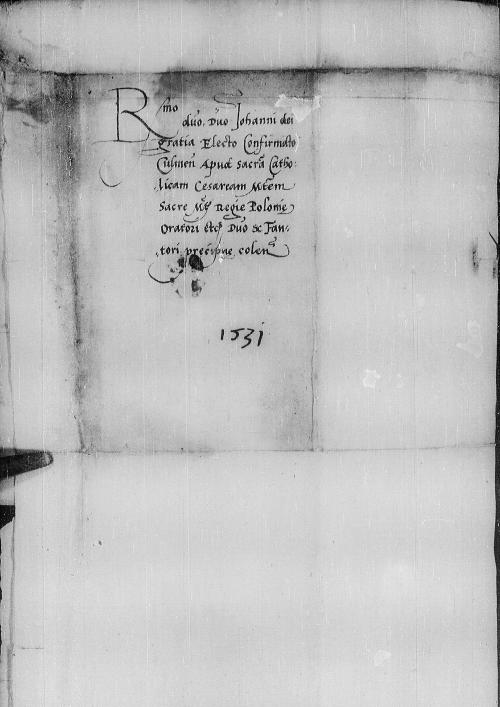 Rmo
dno. Dno Johanni dei
gratia Electo Confirmato
Culmen Apud Sacra Catho:
licam Cesaream Mtem
Sacre Mtis Regie Polonie
Oratori etc Dno & Fau:
tori precipue colen
1531